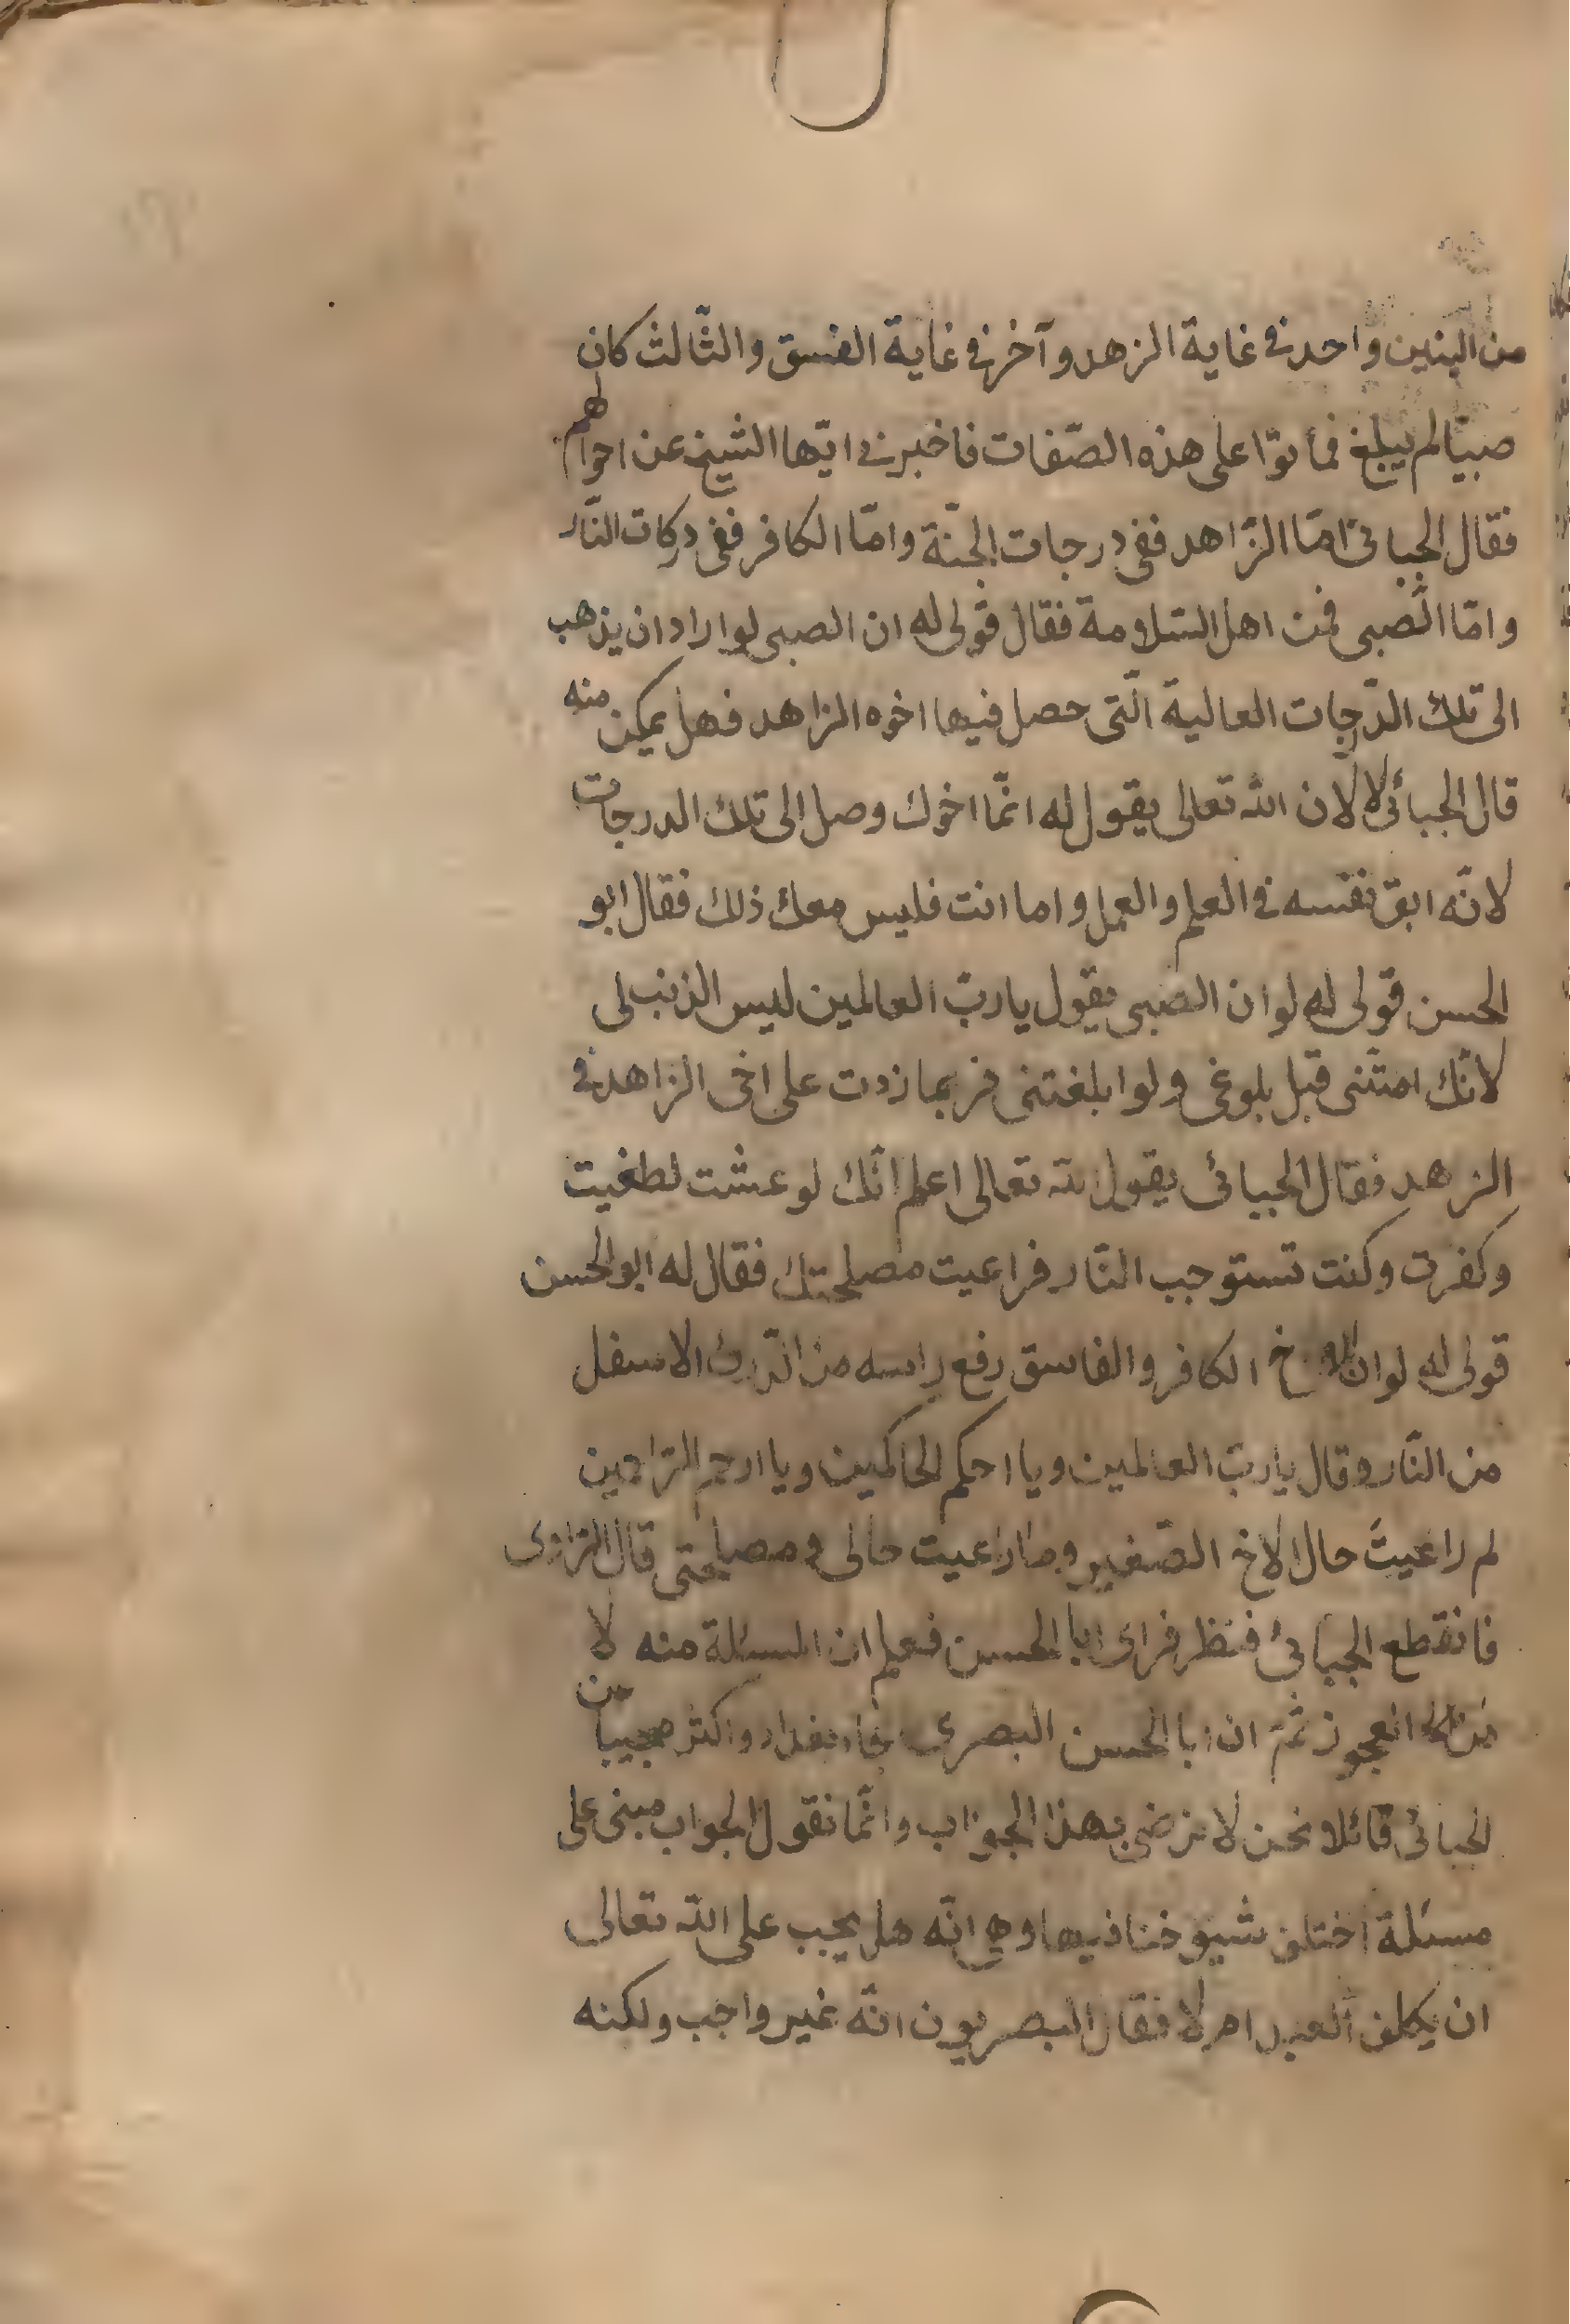 من البنين واحد في غاية الزهد وآخر في غاية الفسق والثّالث كان
صبيّا لم يبلغ فماتوا على هذه الصّفات فاخبرني ايّها الشيخ عن احوالهم
فقال الجبائي امّا الزّاهد ففي درجات الجنّة وامّا الكافر ففي دركات النّار
وامّا الصّبي فمن اهل السّلامة فقال قولي له ان الصبي لو اراد ان يذهب
الى تلك الدّرجات العالية الّتي حصل فيها اخوه الزاهد فهل يمكن منه
قال الجبائي لا لان الله تعالى يقول له انّما اخوك وصل الى تلك الدرجات
لانّه اتعب نفسه في العلم والعمل واما انت فليس معك ذلك فقال ابو
الحسن قولي له لو ان الصبي يقول يا ربّ العالمين ليس الذنب لي
لانّك امتّني قبل بلوغي ولو ابلغتني فربما زدت على اخي الزاهد في
الزهد فقال الجبائي يقول الله تعالى اعلم انّك لو عشت لطغيت
وكفرت وكنت تستوجب النّار فراعيت مصلحتك فقال له ابو الحسن
قولي له لو ان الاخ الكافر والفاسق رفع راسه من الدّرك الاسفل
من النّار وقال يا ربّ العالمين ويا احكم الحاكمين ويا ارحم الرّاحمين
لم راعيتَ حال الاخ الصّغير وما راعيت حالي ومصلحتي قال الرّاوي
فانقطع الجبائيّ فنظر فراى ابا الحسن فعلم ان المسئلة منه لا
من العجوز ثمّ ان ابا الحسن البصري جاء بغداد واكثر مجيبًا من
الجبائي قائلا نحن لا نرضى بهذا الجواب وانّما نقول الجواب مبني على
مسئلة اختلف شيوخنا فيها وهي انّه هل يجب على الله تعالى
ان يكلف العبد ام لا فقال البصريون انّه غير واجب ولكنه